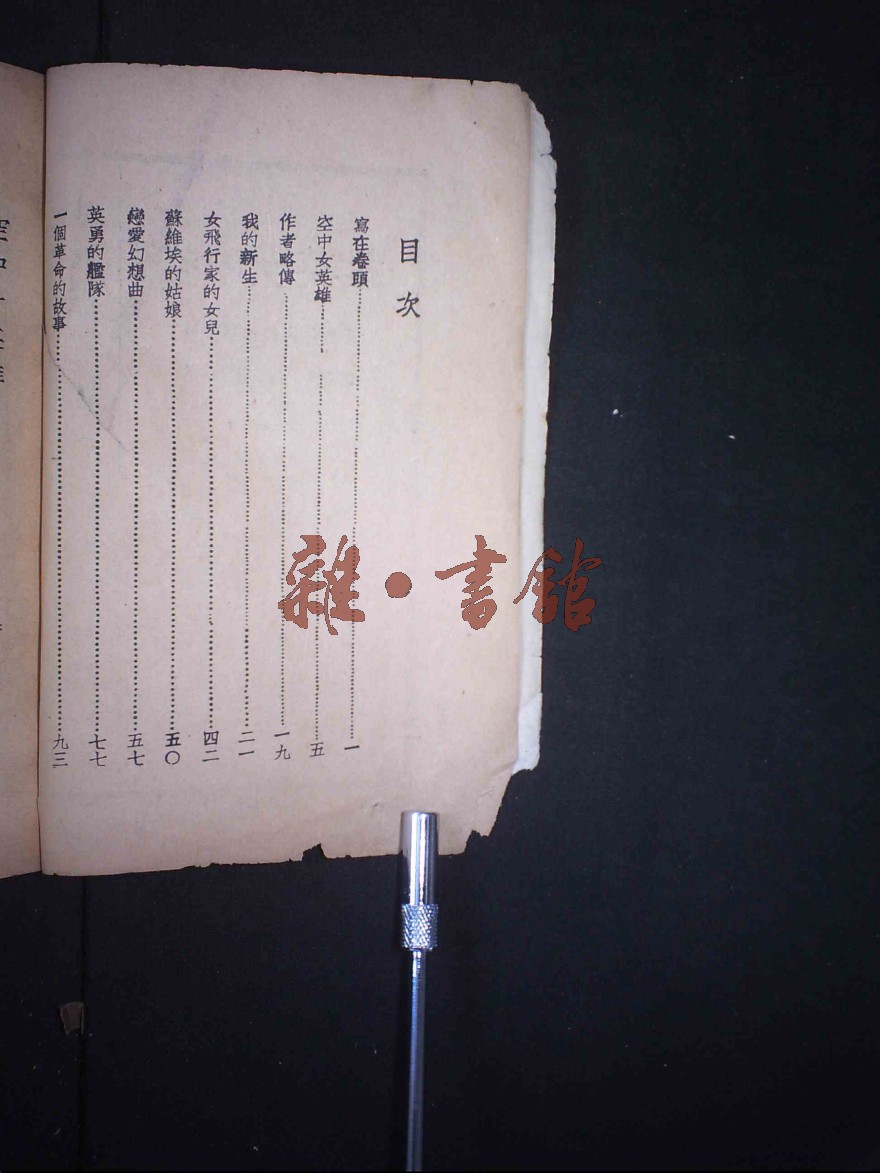 目次
寫在卷頭…………一
空中女英雄…………五
作者略傳…………一九
我的新生…………二一
女飛行家的女兒…………四二
蘇維埃的姑娘…………五〇
戀愛幻想曲…………五七
英勇的艦隊…………七七
一個革命的故事…………九三
雜·書館